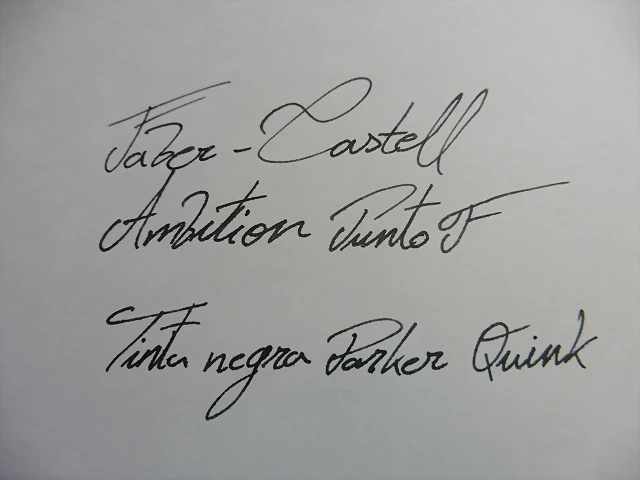 Faber - Castell
Ambition Punto F
Tinta negra Parker Quink